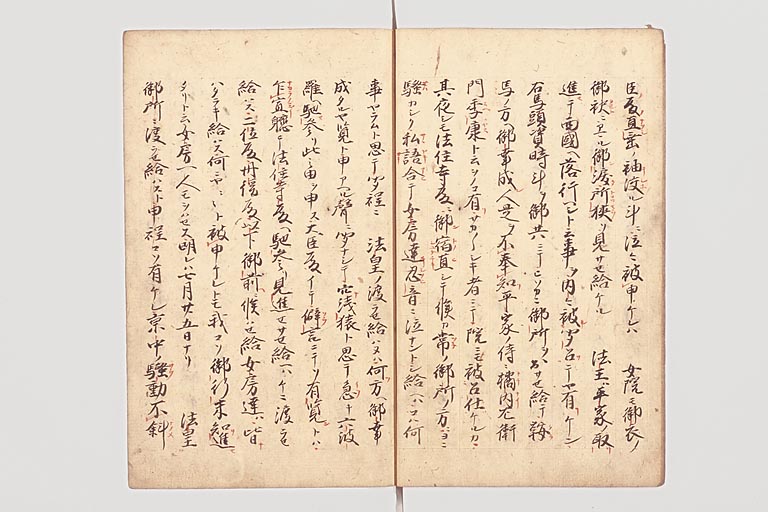 臣殿直垂ノ袖渡ル斗ニ泣々被申ケレハ　女院モ御衣ノ
御袂ニ立ル御渡所狭ソ見サセ給ケル　法王ハ平家ノ取
進テ西國ヘ落行ヘシト云事ヲ内々被聞召テヤ有ケン
右馬頭資時斗ヲ御共ニテヒソカニ御所ヲ出サセ給テ鞍
馬ノ方ヘ御幸成人是ヲ不奉知平家ノ侍ニ橘内左衛
門季康ト云者ノ有サカ〳〵シキ者ニテ院ニモ被召仕ケルカ
其夜シモ法住寺殿ヘ御宿直シテ候カ常ノ御所ノ方ヨニ
騒カシク私語合テ女房達忍音ニ泣ナントシ給ヘハコハ何
事ヤラムト思テ聞程ニ　法皇ノ渡セ給ハヌハ何方ヘ御幸
成タルヤ覧ト申アヘル聲ニ聞ナシテ穴浅猿ト思テ急キ六波
羅ヘ馳参リ此由ヲ申ス大臣殿イテ僻言ニテソ有覧トハ
乍宣聴テ法住寺殿ヘ馳参テ見進セサセ給ヘハケニモ渡セ
給ハス二位殿丹後殿以下御前ニ候ハセ給女房達ハ皆
ハタラキ給ハス何ニヤ〳〵ト被申ケレトモ我コソ御行末知進
タリト云女房一人モヲハセス明レハ七月廿五日ナリ　法皇
御所ニ渡セ給ハスト申程コソ有ケレ京中騒動不斜